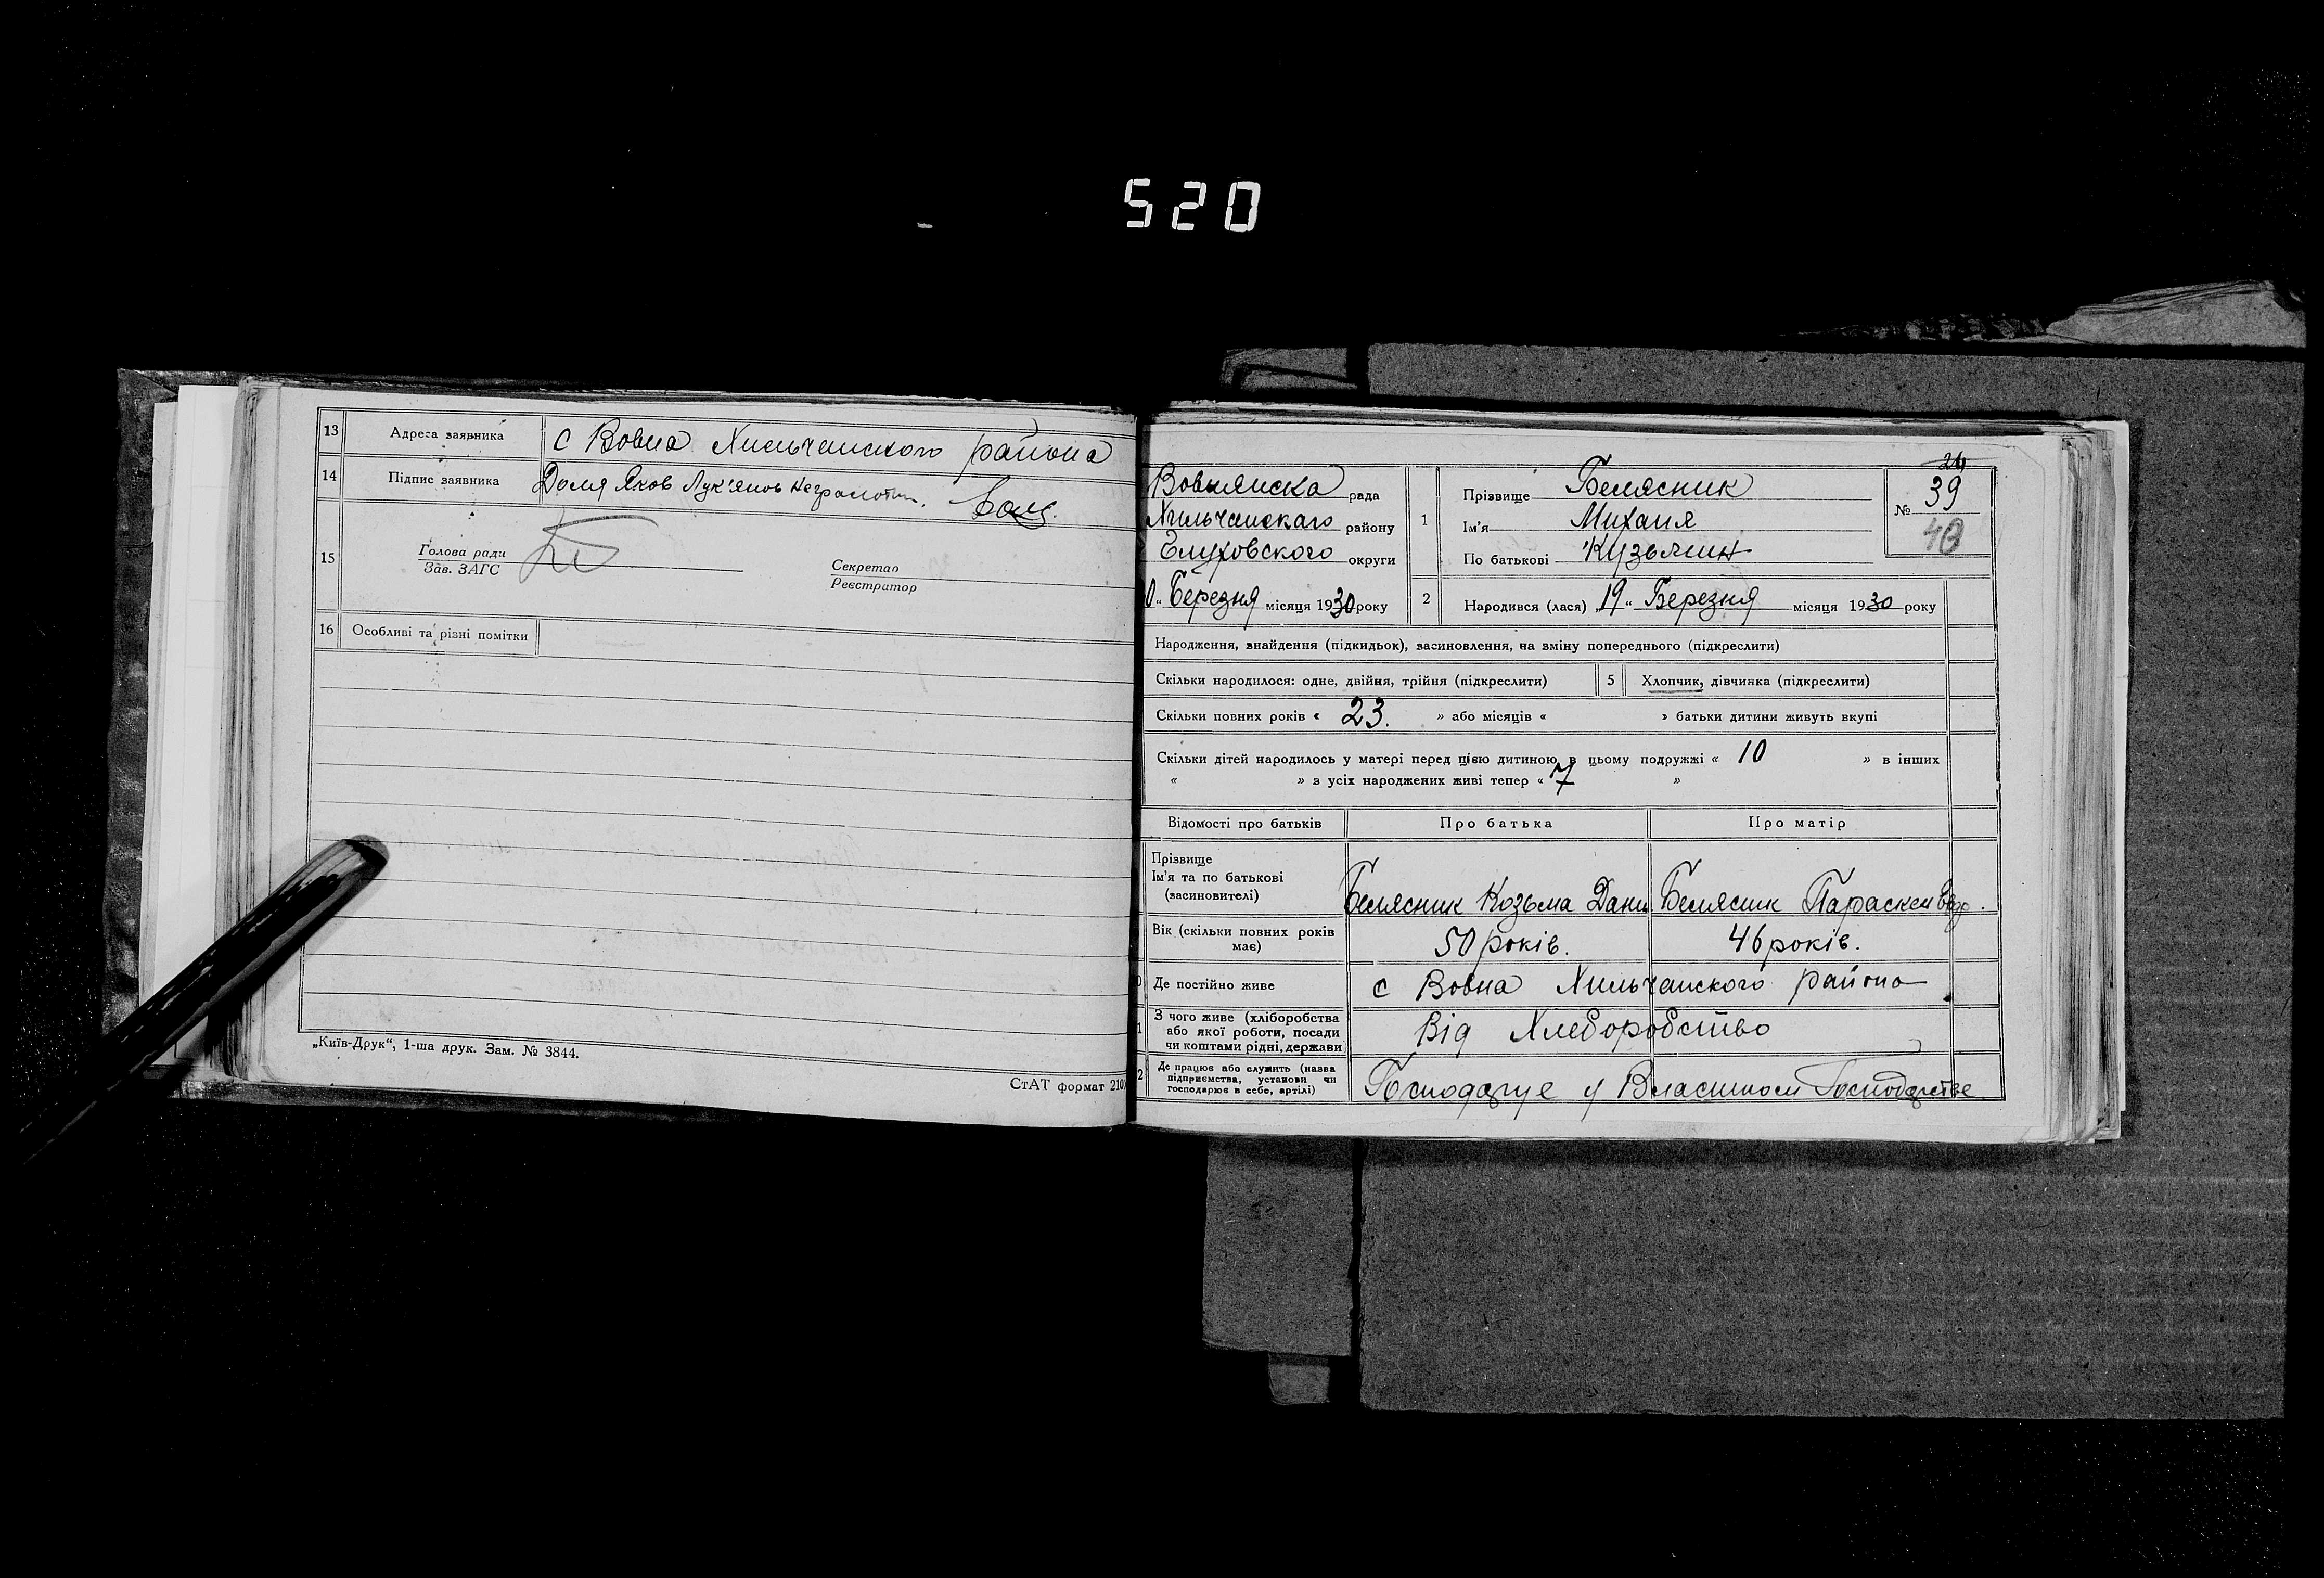 520
13 Адреса заявника с Вовна Хильчанского района
14 Підпис заявника Доля Яков Лук'янов неграмотн.
15 Голова ради
Зав. ЗАГС
Секретар
Реєстратор
16 Особливі та різні помітки
„Київ-Друк“, 1-ша друк. Зам. № 3844.
СтАТ формат 210
Вовнянска рада
Хильчанскаго району
Глуховского округи
0„ Березня місяця 1930 року
1 Прізвище Белясник
Ім'я Михаил
По батькові Кузьмин
24
№ 39
40
2 Народився (лася) 19 „ Березня місяця 1930 року
Народження, знайдення (підкидьок), засиновлення, на зміну попереднього (підкреслити)
Скільки народилося: одне, двійня, трійня (підкреслити) 5 Хлопчик, дівчинка (підкреслити)
Скільки повних років « 23. » або місяців « » батьки дитини живуть вкупі
Скільки дітей народилось у матері перед цією дитиною в цьому подружжі « 10 » в інших
« » з усіх народжених живі тепер « 7 »
Відомості про батьків Про батька Про матір
Прізвище
Ім'я та по батькові
(засиновителі)
Белясник Козьма Дани Белясник Параскеи
Вік (скільки повних років має) 50 років. 46 років.
0 Де постійно живе с Вовна Хильчанского района
1 З чого живе (хліборобства
або якої роботи, посади
чи коштами рідні, держави
Від Хлеборобство
2 Де працює або служить (назва
підприємства, установи чи
господарює в себе, артілі)
Господарує у Власном Господарстве